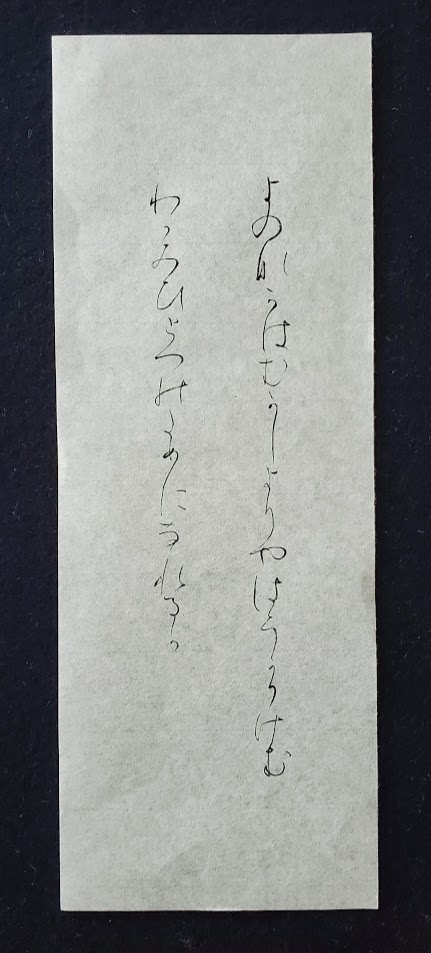 よのなかはむかしよりやはうかりけむ
わかみひとつのためになれるか